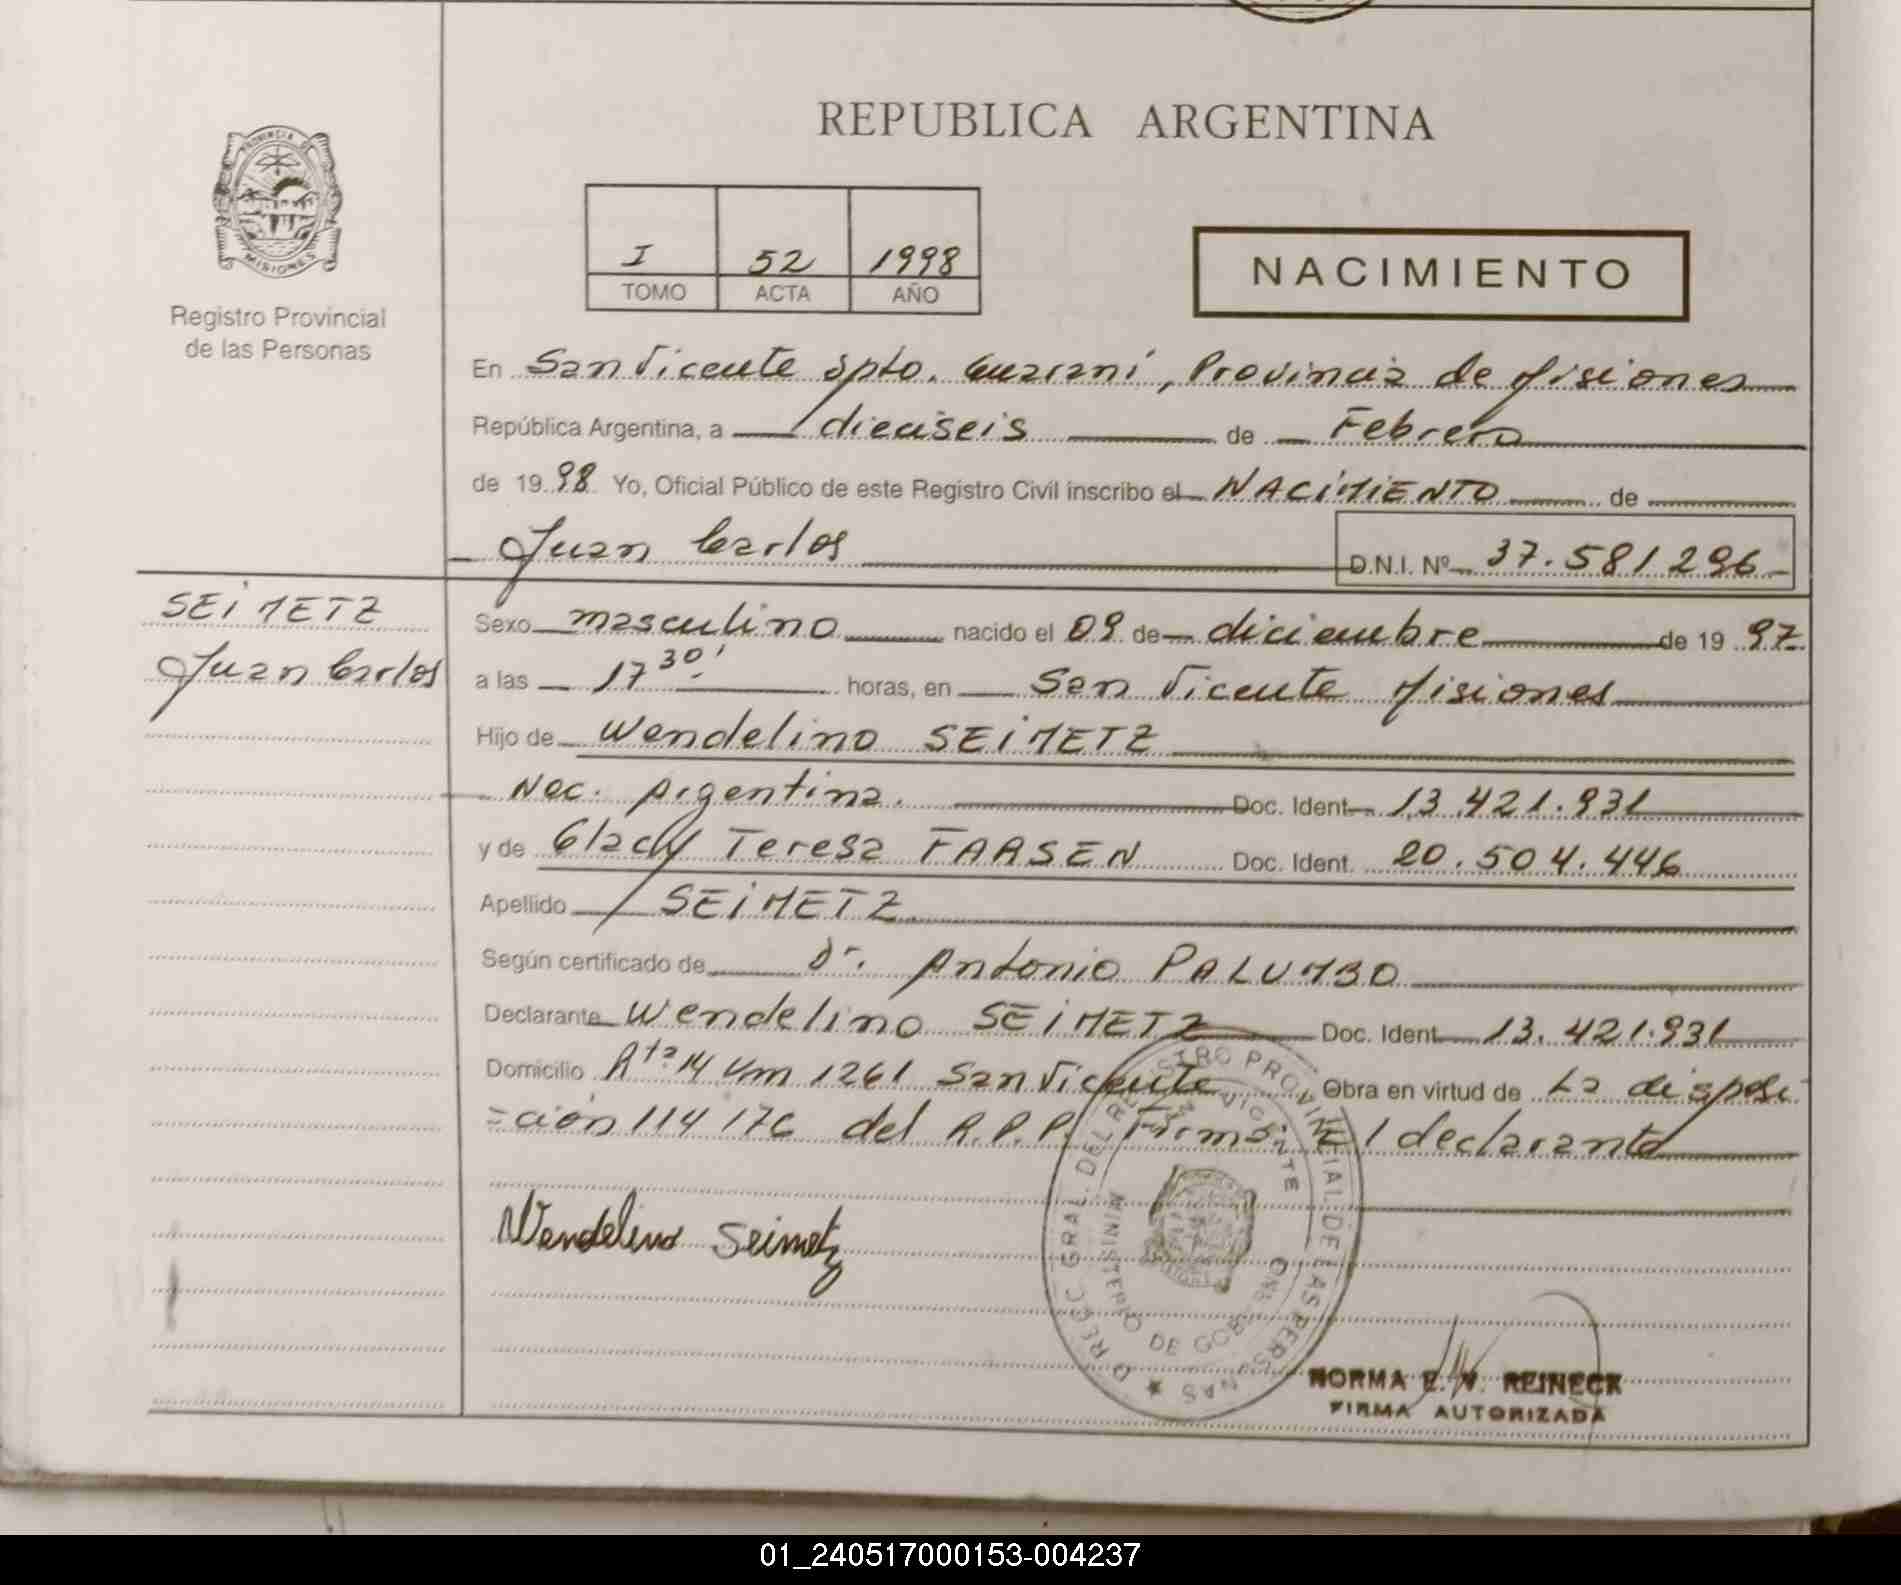 REPUBLICA ARGENTINA
PROVINCIA DE
MISIONES
Registro Provincial
de las Personas
I 52 1998
TOMO ACTA AÑO
NACIMIENTO
En San Vicente Dpto. Guaraní, Provincia de Misiones
República Argentina, a dieciseis de Febrero
de 1998 Yo, Oficial Público de este Registro Civil inscribo el NACIMIENTO de
Juan Carlos D.N.I. Nº 37.581296
SEIMETZ
Juan Carlos
Sexo masculino nacido el 09 de diciembre de 1997
a las 17 30' horas, en San Vicente Misiones
Hijo de Wendelino SEIMETZ
Nac. Argentina. Doc. Ident 13.421.931
y de Glady Teresa FAASEN Doc. Ident. 20.504.446
Apellido SEIMETZ
Según certificado de Dr. Antonio PALUMBO
Declarante Wendelino SEIMETZ Doc. Ident 13.421.931
Domicilio Rta 14 Km 1261 San Vicente Obra en virtud de La disposi
=ción 114 176 del R.P.P. Firmó el declarante
Wendelino Seimetz
MINISTERIO DE GOB
NORMA E. W. REINECK
FIRMA AUTORIZADA
01_240517000153-004237